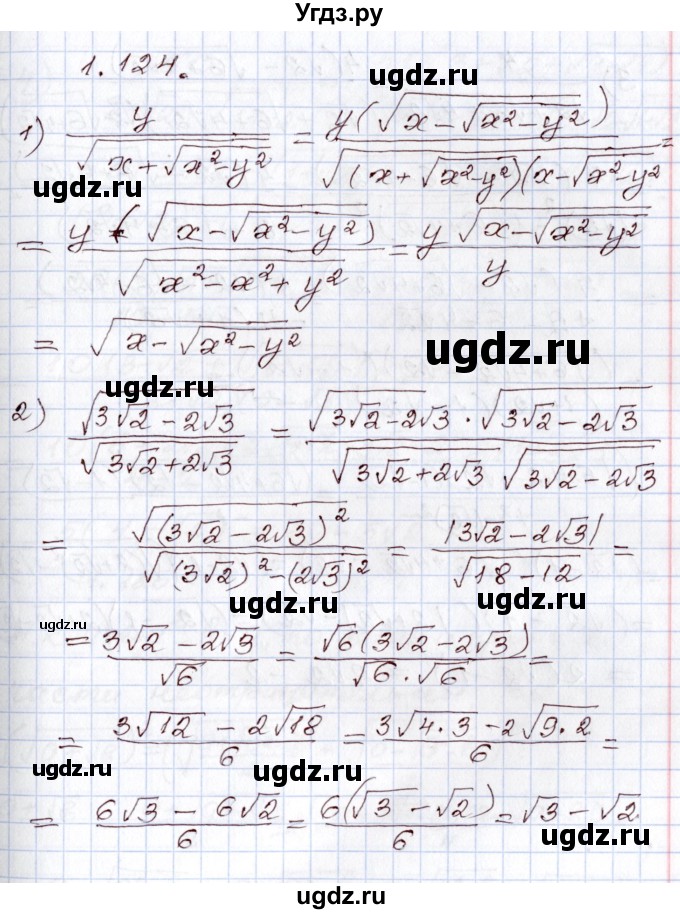 Угдз.ру
1.124.
ugdz.ru
1) y/√(x+√(x²-y²)) = y(√(x-√(x²-y²)))/√((x+√(x²-y²))(x-√(x²-y²)) =
ugdz.ru
ugdz.ru
= y(√(x-√(x²-y²)))/√(x²-x²+y²) = y√(x-√(x²-y²))/y
= √(x-√(x²-y²))
ugdz.ru
2) √(3√2-2√3)/√(3√2+2√3) = √(3√2-2√3)·√(3√2-2√3)/√(3√2+2√3)√(3√2-2√3)
ugdz.ru
= √((3√2-2√3)²)/√((3√2)²-(2√3)²) = |3√2-2√3|/√(18-12) =
ugdz.ru
ugdz.ru
ugdz.ru
= (3√2-2√3)/√6 = √6(3√2-2√3)/(√6·√6) =
= (3√12-2√18)/6 = (3√(4·3)-2√(9·2))/6 =
ugdz.ru
ugdz.ru
= (6√3-6√2)/6 = 6(√3-√2)/6 = √3-√2.
ugdz.ru
ugdz.ru